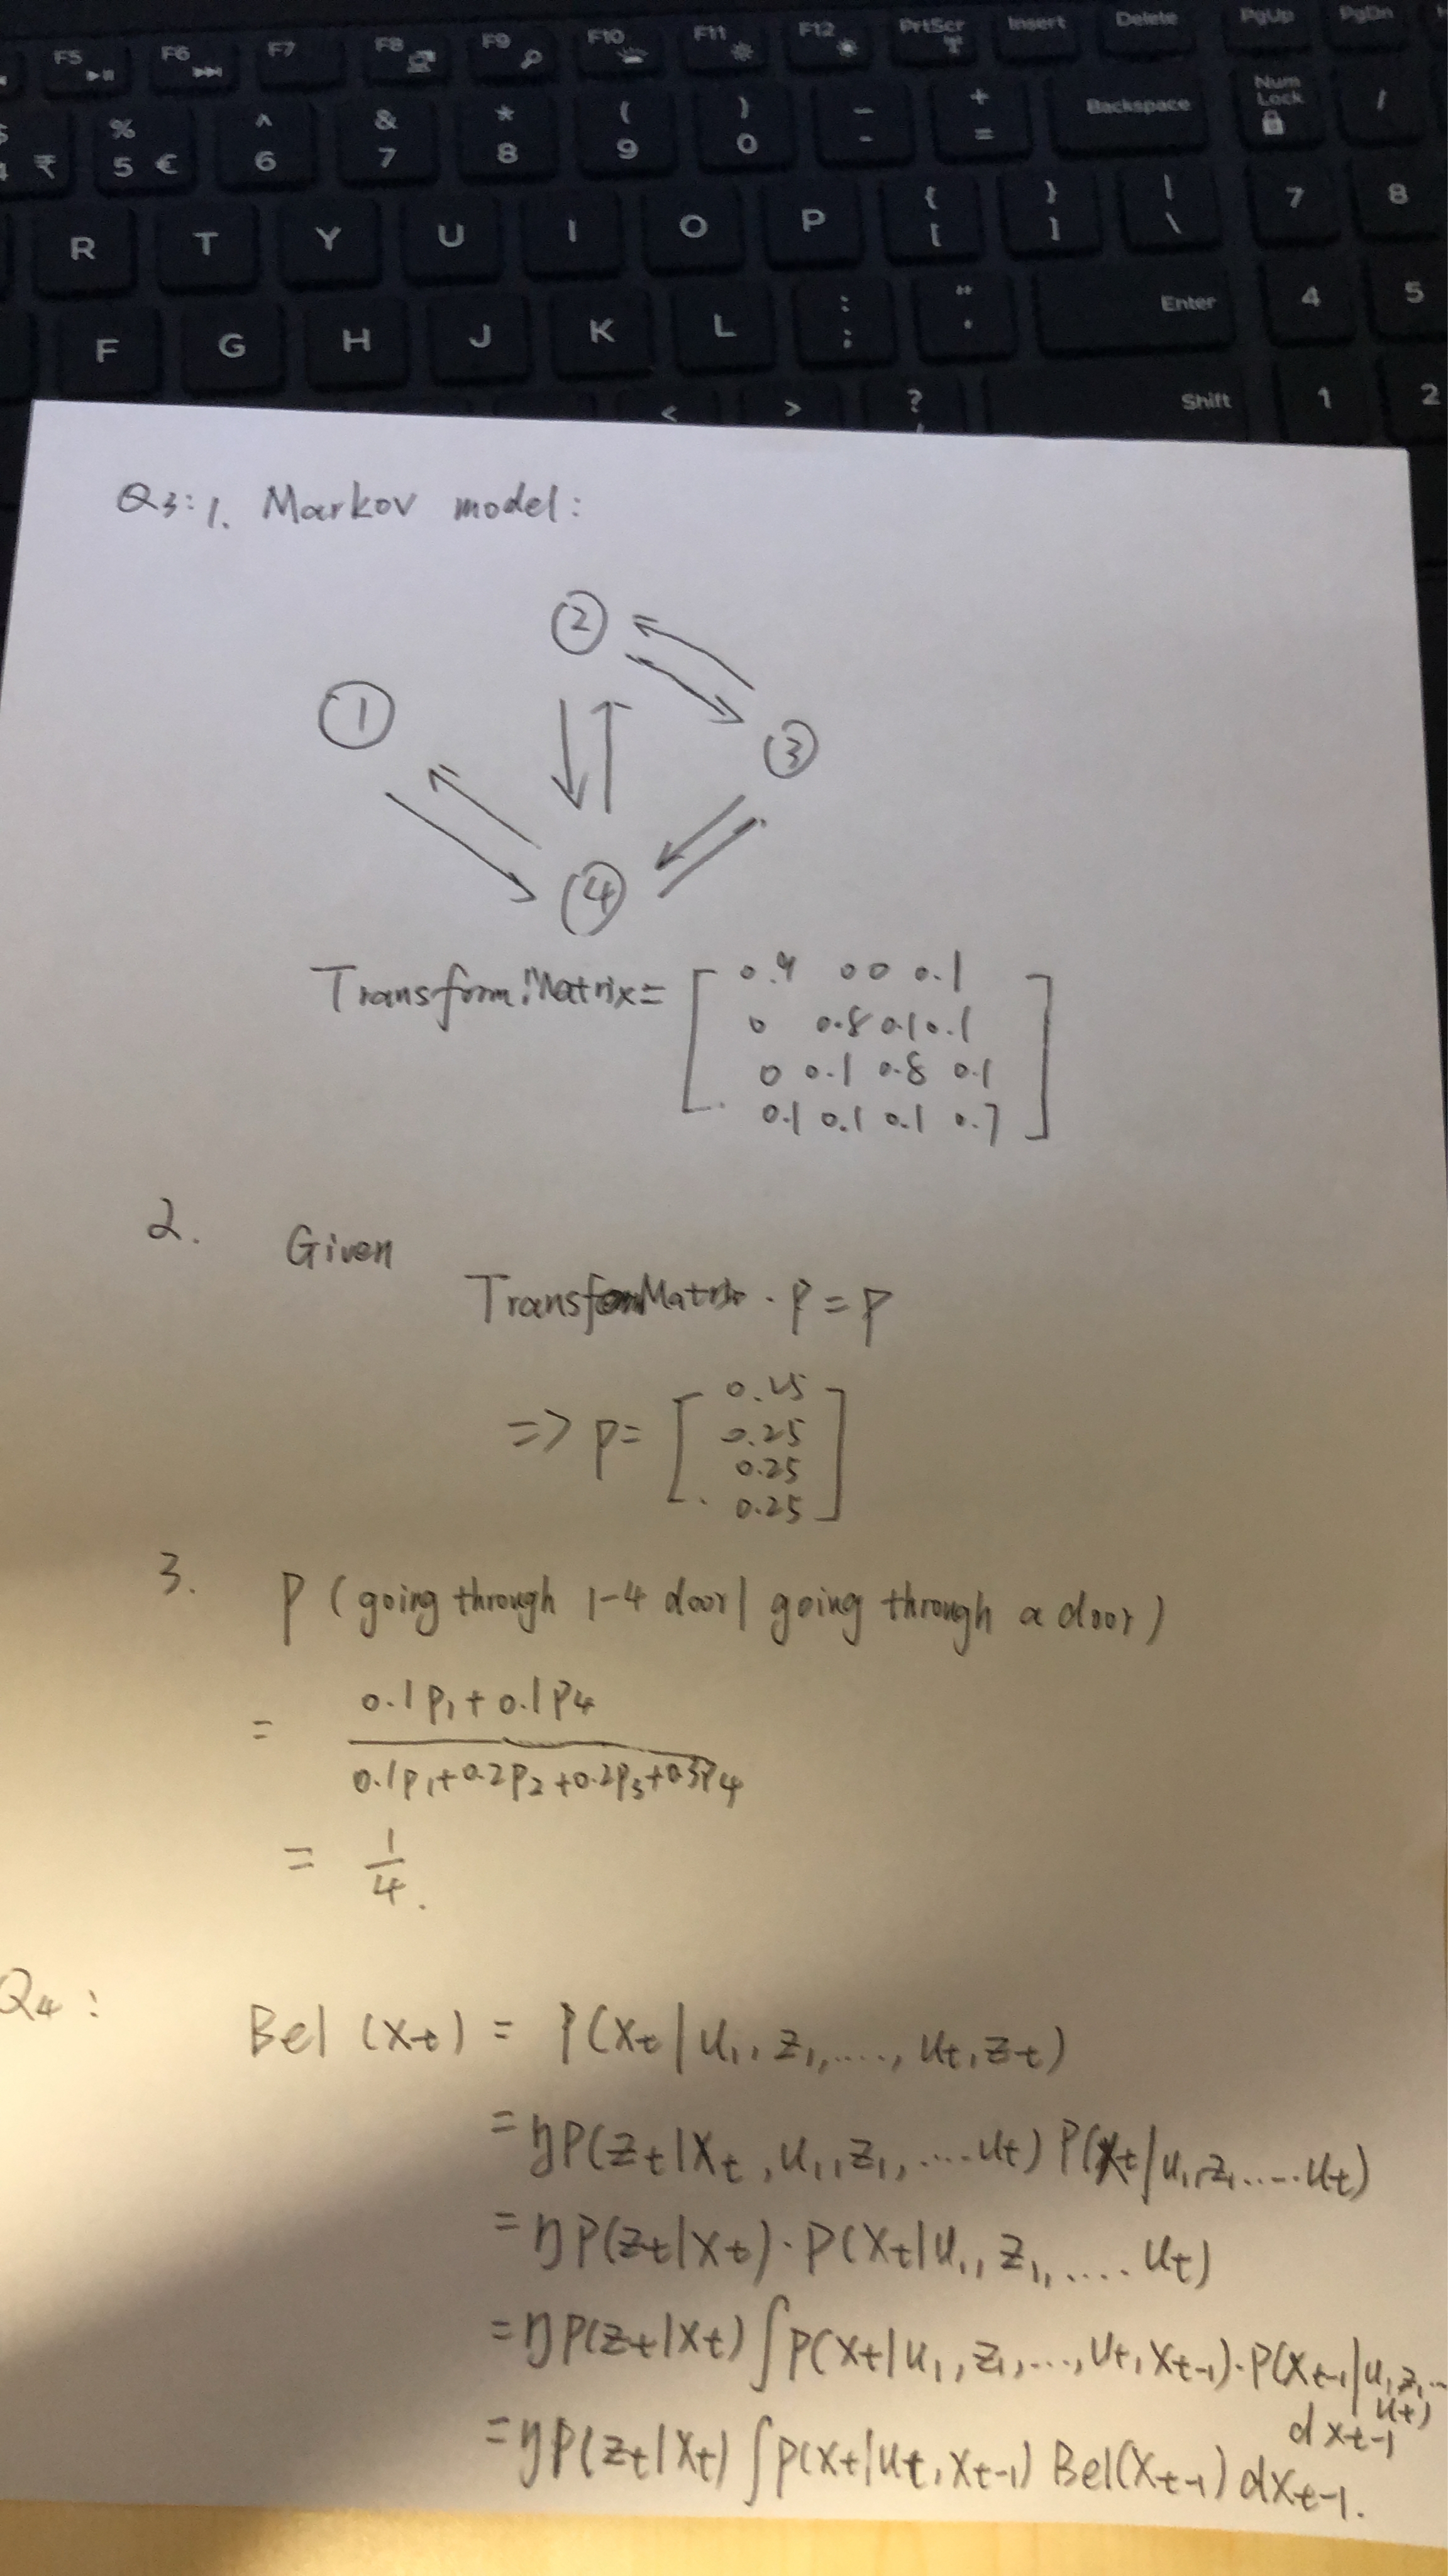 F5 F6 F7 F8 F9 F10 F11 F12 PrtScr Insert Delete PgUp PgDn
₹ % 5 € ^ 6 & 7 * 8 ( 9 ) 0 – - + = Backspace Num Lock /
R T Y U I O P { [ } ] | \ 7 8
F G H J K L : ; " ' Enter 4 5
< > ? Shift 1 2
Q3: 1. Markov model:
2
1
3
4
Transform Matrix = [ 0.9 0 0 0.1
0 0.8 0.1 0.1
0 0.1 0.8 0.1
0.1 0.1 0.1 0.7 ]
2. Given
TransformMatrix · P = P
=> P = [ 0.25
0.25
0.25
0.25 ]
3. P ( going through 1-4 door | going through a door )
= 0.1P1 + 0.1P4
0.1P1 + 0.2P2 + 0.2P3 + 0.3P4
= 1/4.
Q4: Bel (xt) = P(xt | u1, z1, ...., ut, zt)
= ηP(zt | xt, u1, z1, .... ut) P(xt | u1, z1 ..... ut)
= ηP(zt | xt) · P(xt | u1, z1, .... ut)
= ηP(zt | xt) ∫P(xt | u1, z1, ..., ut, xt-1) · P(xt-1 | u1, z1, ..
ut)
dxt-1
= ηP(zt | xt) ∫P(xt | ut, xt-1) Bel(xt-1) dxt-1.